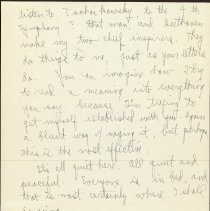 listen to Tschaikowsky to the 4th
Symphony? That man and Beethoven
make my two chief inspirers. They
do things to me, just as your letters
do. You can imagine how I try
to read a meaning into everything
you say because I'm trying to
get myself established with you. Again
a blunt way of saying it, but perhaps
this is the most effective.
It's all quiet here. All quiet and
peaceful. Everyone is in bed and
that is most certainly where I shall
be